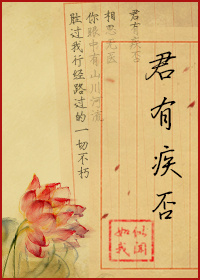 君有疾否
君有疾否
相思无医
你眼中有山川河流
胜过我行经路过的一切不朽
如似
我闻